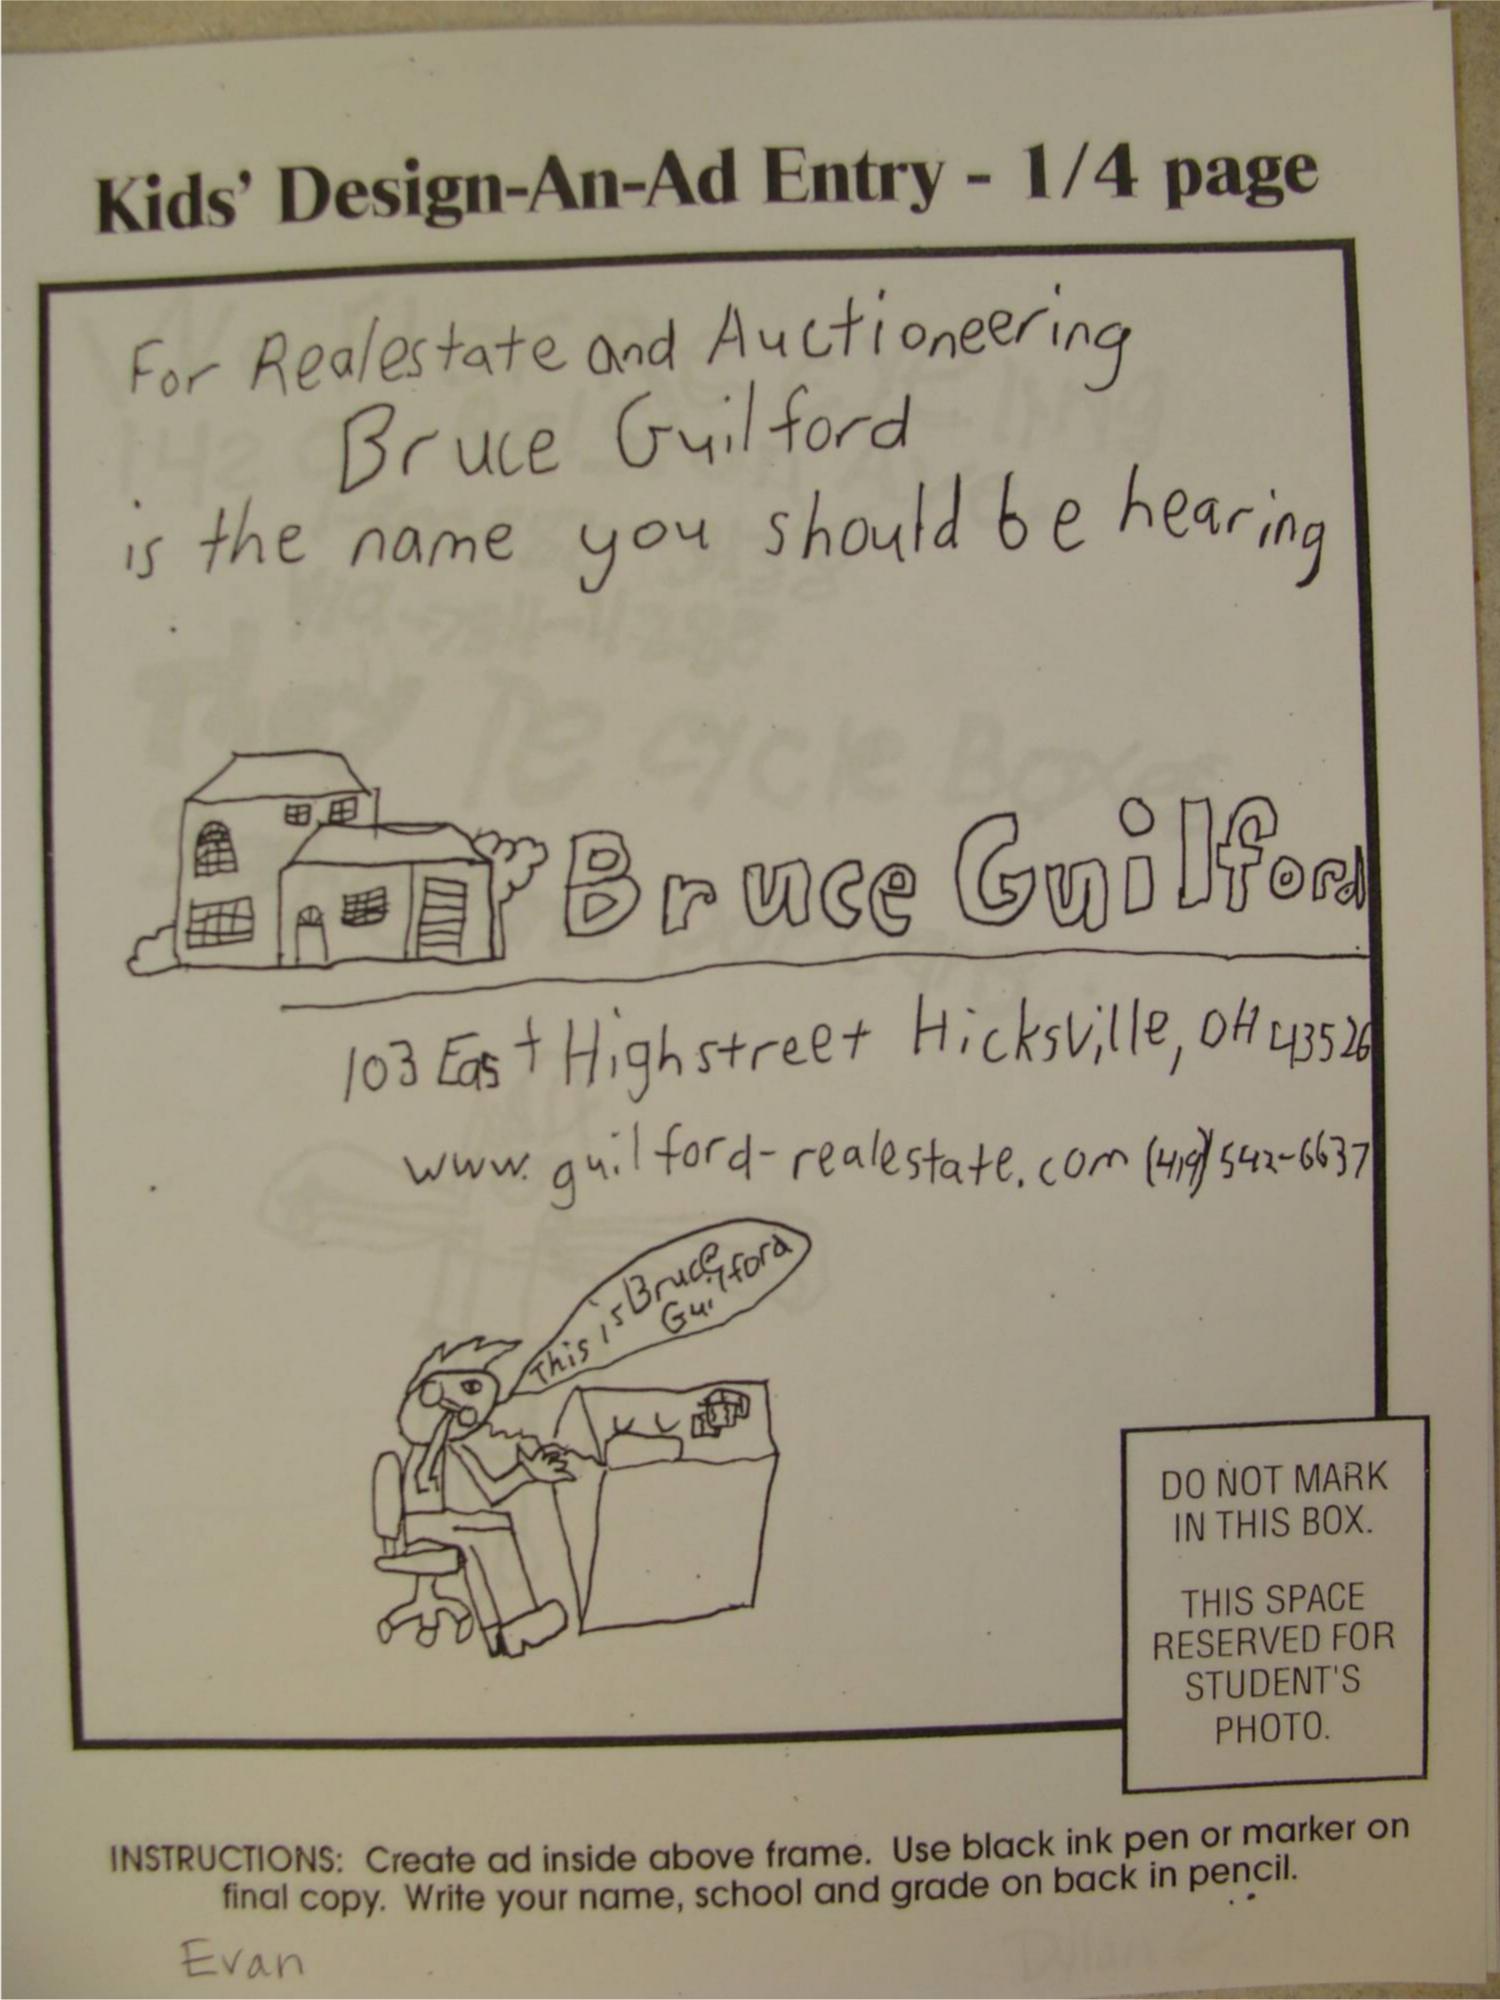 Kids' Design-An-Ad Entry - 1/4 page
For Realestate and Auctioneering
Bruce Guilford
is the name you should be hearing
Bruce Guilford
103 East Highstreet Hicksville, OH 43526
www.guilford-realestate.com (419) 542-6637
This is Bruce
Guilford
DO NOT MARK
IN THIS BOX.
THIS SPACE
RESERVED FOR
STUDENT'S
PHOTO.
INSTRUCTIONS: Create ad inside above frame. Use black ink pen or marker on
final copy. Write your name, school and grade on back in pencil.
Evan